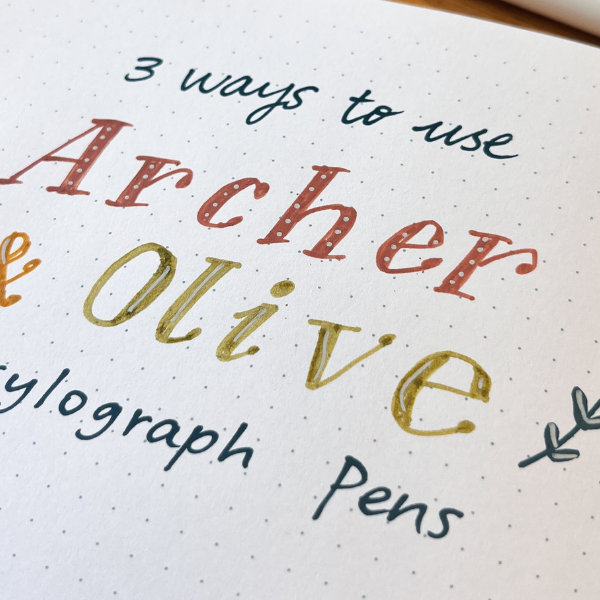 3 ways to use
Archer
& Olive
ylograph Pens